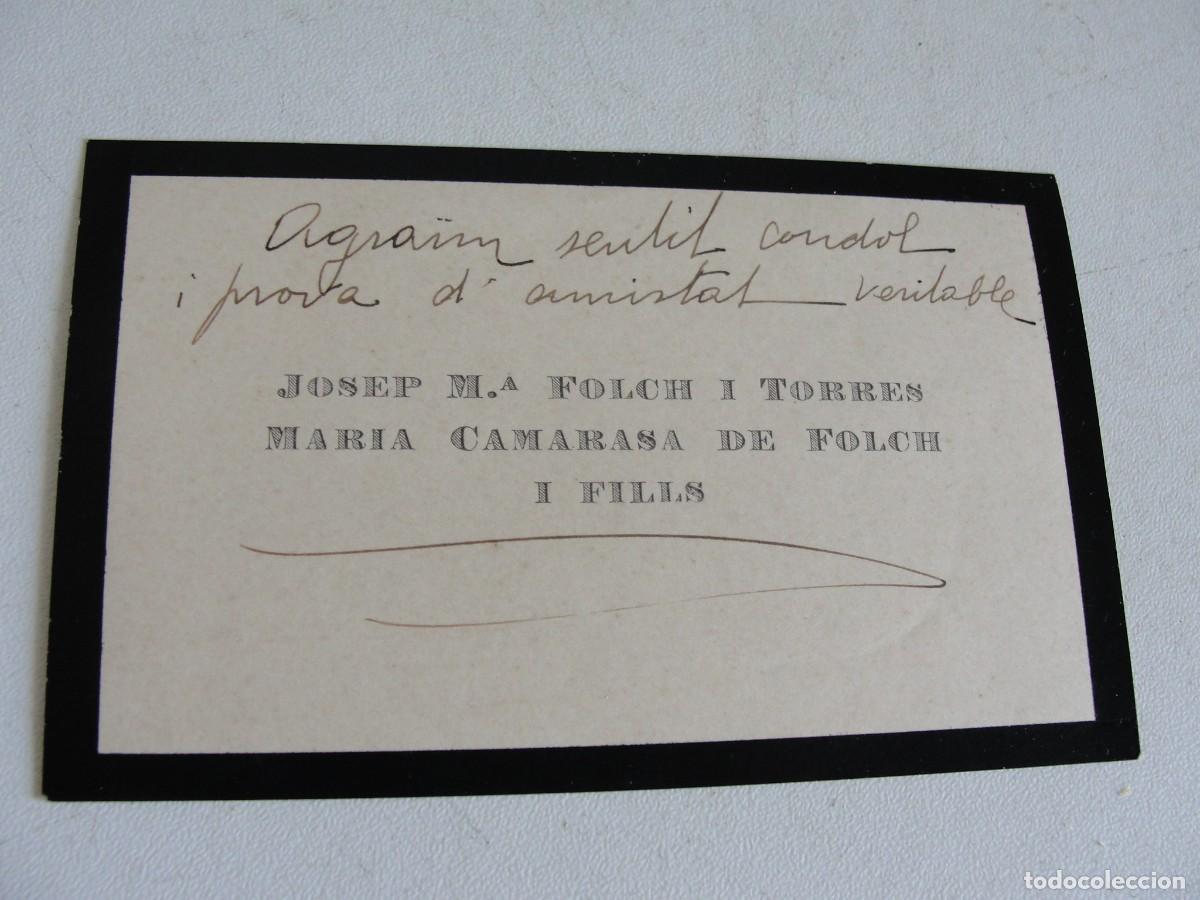 Agraïm sentit condol
i prova d'amistat veritable
JOSEP M.ª FOLCH I TORRES
MARIA CAMARASA DE FOLCH
I FILLS
todocoleccion